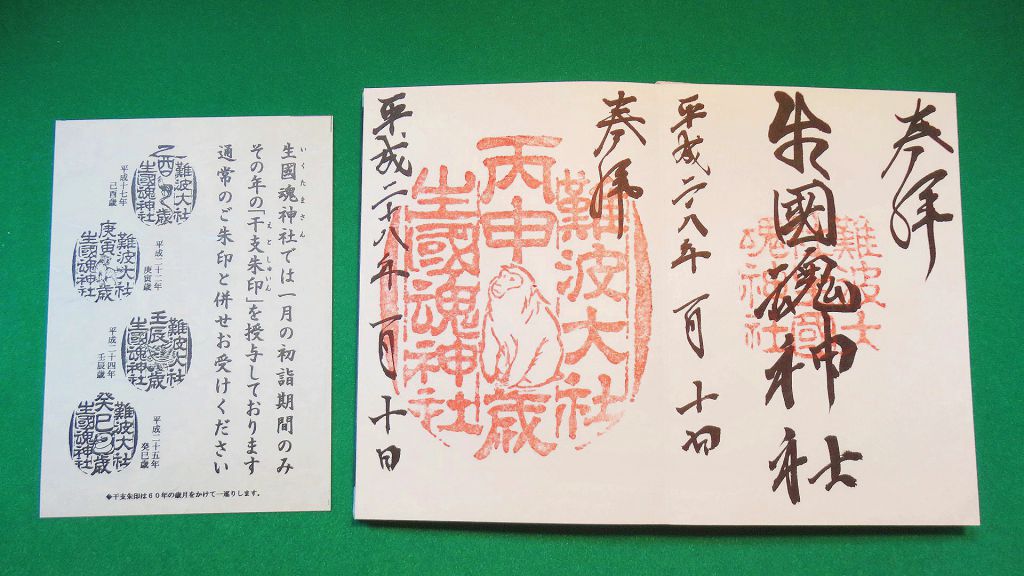 いくたまさん
生國魂神社では一月の初詣期間のみ
えとしゅいん
その年の「干支朱印」を授与しております
通常のご朱印と併せお受けください
難波大社
乙酉歳
生國魂神社
平成十七年
己酉歳
難波大社
庚寅歳
生國魂神社
平成二十二年
庚寅歳
難波大社
壬辰歳
生國魂神社
平成二十四年
壬辰歳
難波大社
癸巳歳
生國魂神社
平成二十五年
癸巳歳
◆干支朱印は60年の歳月をかけて一巡りします。
奉拝
生國魂神社
難波大社
魂神社
平成二十八年一月十日
奉拝
難波大社
丙申歳
生國魂神社
平成二十八年一月十日